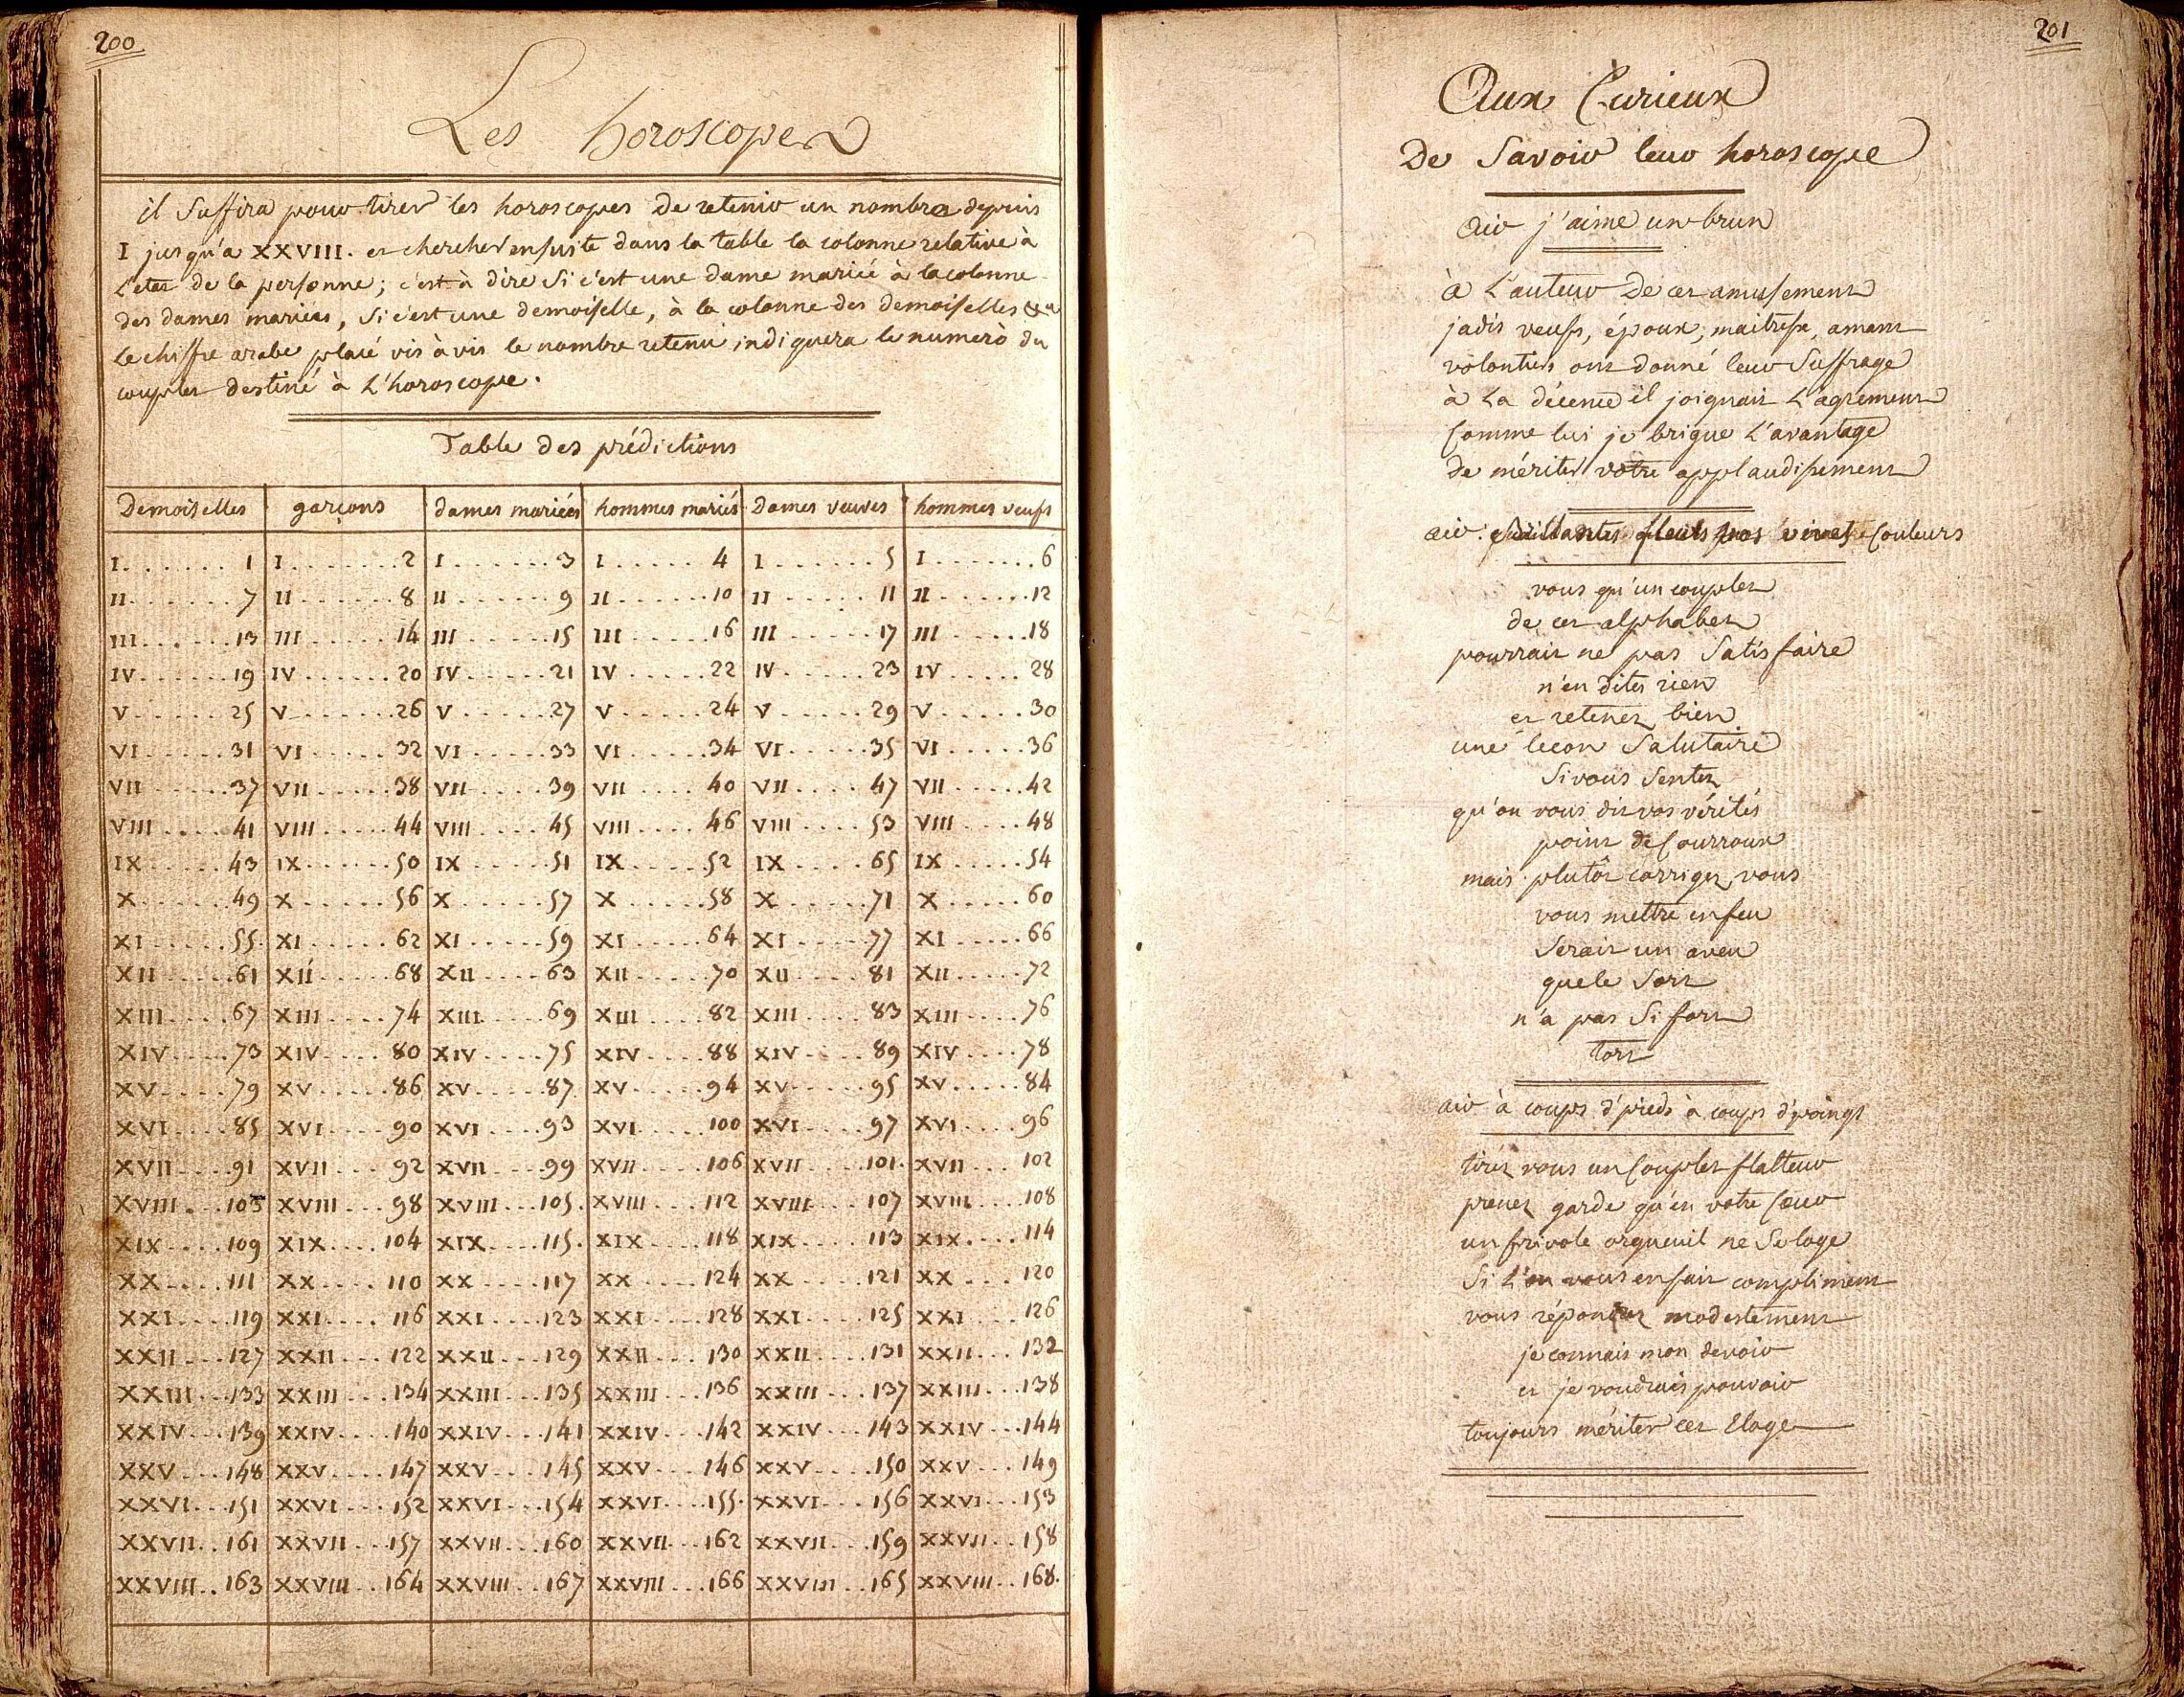 200
Les horoscopes
il Suffira pour tirer les horoscopes De retenir un nombre depuis
I jusqu'a XXVIII. et chercher ensuite dans la table la colonne relative à
L'etat de la personne; c'est-à dire Si c'est une dame mariée à la colonne
des dames mariées, Si c'est une demoiselle, à la colonne des demoiselles &a
le chiffre arabe placé vis à vis le nombre retenu indiquera le numero du
couplet destiné à L'horoscope.
Table des prédictions
Demoiselles garçons dames mariées hommes mariés Dames veuves hommes veufs
I.......1 I.......2 I.......3 I.....4 I......5 I.......6
II......7 II......8 II......9 II......10 II......11 II......12
III......13 III.....14 III.....15 III.....16 III.....17 III.....18
IV......19 IV......20 IV......21 IV.....22 IV.....23 IV.....28
V......25 V......26 V......27 V......24 V.....29 V.....30
VI......31 VI.....32 VI.....33 VI.....34 VI.....35 VI.....36
VII.....37 VII.....38 VII....39 VII....40 VII....47 VII.....42
VIII....41 VIII....44 VIII....45 VIII....46 VIII....53 VIII....48
IX.....43 IX......50 IX.....51 IX.....52 IX....65 IX.....54
X......49 X......56 X......57 X......58 X.....71 X.....60
XI.....55. XI.....62 XI.....59 XI.....64 XI.....77 XI.....66
XII.....61 XII.....68 XII....63 XII....70 XII....81 XII.....72
XIII....67 XIII....74 XIII....69 XIII....82 XIII....83 XIII....76
XIV....73 XIV....80 XIV....75 XIV....88 XIV....89 XIV....78
XV.....79 XV.....86 XV.....87 XV.....94 XV.....95 XV.....84
XVI....85 XVI....90 XVI....93 XVI....100 XVI....97 XVI....96
XVII....91 XVII...92 XVII...99 XVII....106 XVII....101. XVII...102
XVIII...103 XVIII...98 XVIII...105. XVIII...112 XVIII...107 XVIII...108
XIX....109 XIX....104 XIX....115. XIX....118 XIX....113 XIX....114
XX....111 XX....110 XX....117 XX....124 XX....121 XX...120
XXI....119 XXI....116 XXI...123 XXI....128 XXI....125 XXI...126
XXII...127 XXII...122 XXII...129 XXII...130 XXII...131 XXII...132
XXIII...133 XXIII...134 XXIII...135 XXIII...136 XXIII...137 XXIII...138
XXIV...139 XXIV....140 XXIV...141 XXIV...142 XXIV...143 XXIV...144
XXV...148 XXV....147 XXV...145 XXV...146 XXV....150 XXV...149
XXVI...151 XXVI...152 XXVI...154 XXVI...155. XXVI...156 XXVI...153
XXVII..161 XXVII...157 XXVII...160 XXVII...162 XXVII...159 XXVII..158
XXVIII..163 XXVIII..164 XXVIII..167 XXVIII...166 XXVIII..165 XXVIII..168.
201
Aux Curieux
De Savoir leur horoscope
air j'aime un brun
à L'auteur De cet amusement
jadis veufs, époux, maitresse, amant
volontiers ont donné leur Suffrage
à La décence il joignait L'agrement
Comme lui je brigue L'avantage
de mériter votre applaudissement
air: fleurs vos vives Couleurs
vous qu'un couplet
de cet alphabet
pourrait ne pas Satisfaire
n'en dites rien
et retenez bien
une lecon Salutaire
Si vous Sentez
qu'on vous dit vos vérités
point de Courroux
mais plutôt corrigez vous
vous mettre en feu
Serait un aveu
que le Sort
n'a pas Si fort
tort
air à coups d'pieds à coups d'poings
tirez vous un Couplet flatteur
prenez garde qu'en votre Cœur
un frivole orgueuil ne Se loge
Si L'on vous en fait compliment
vous répondrez modestement
je connais mon devoir
et je voudrais pouvoir
toujours mériter cet Eloge